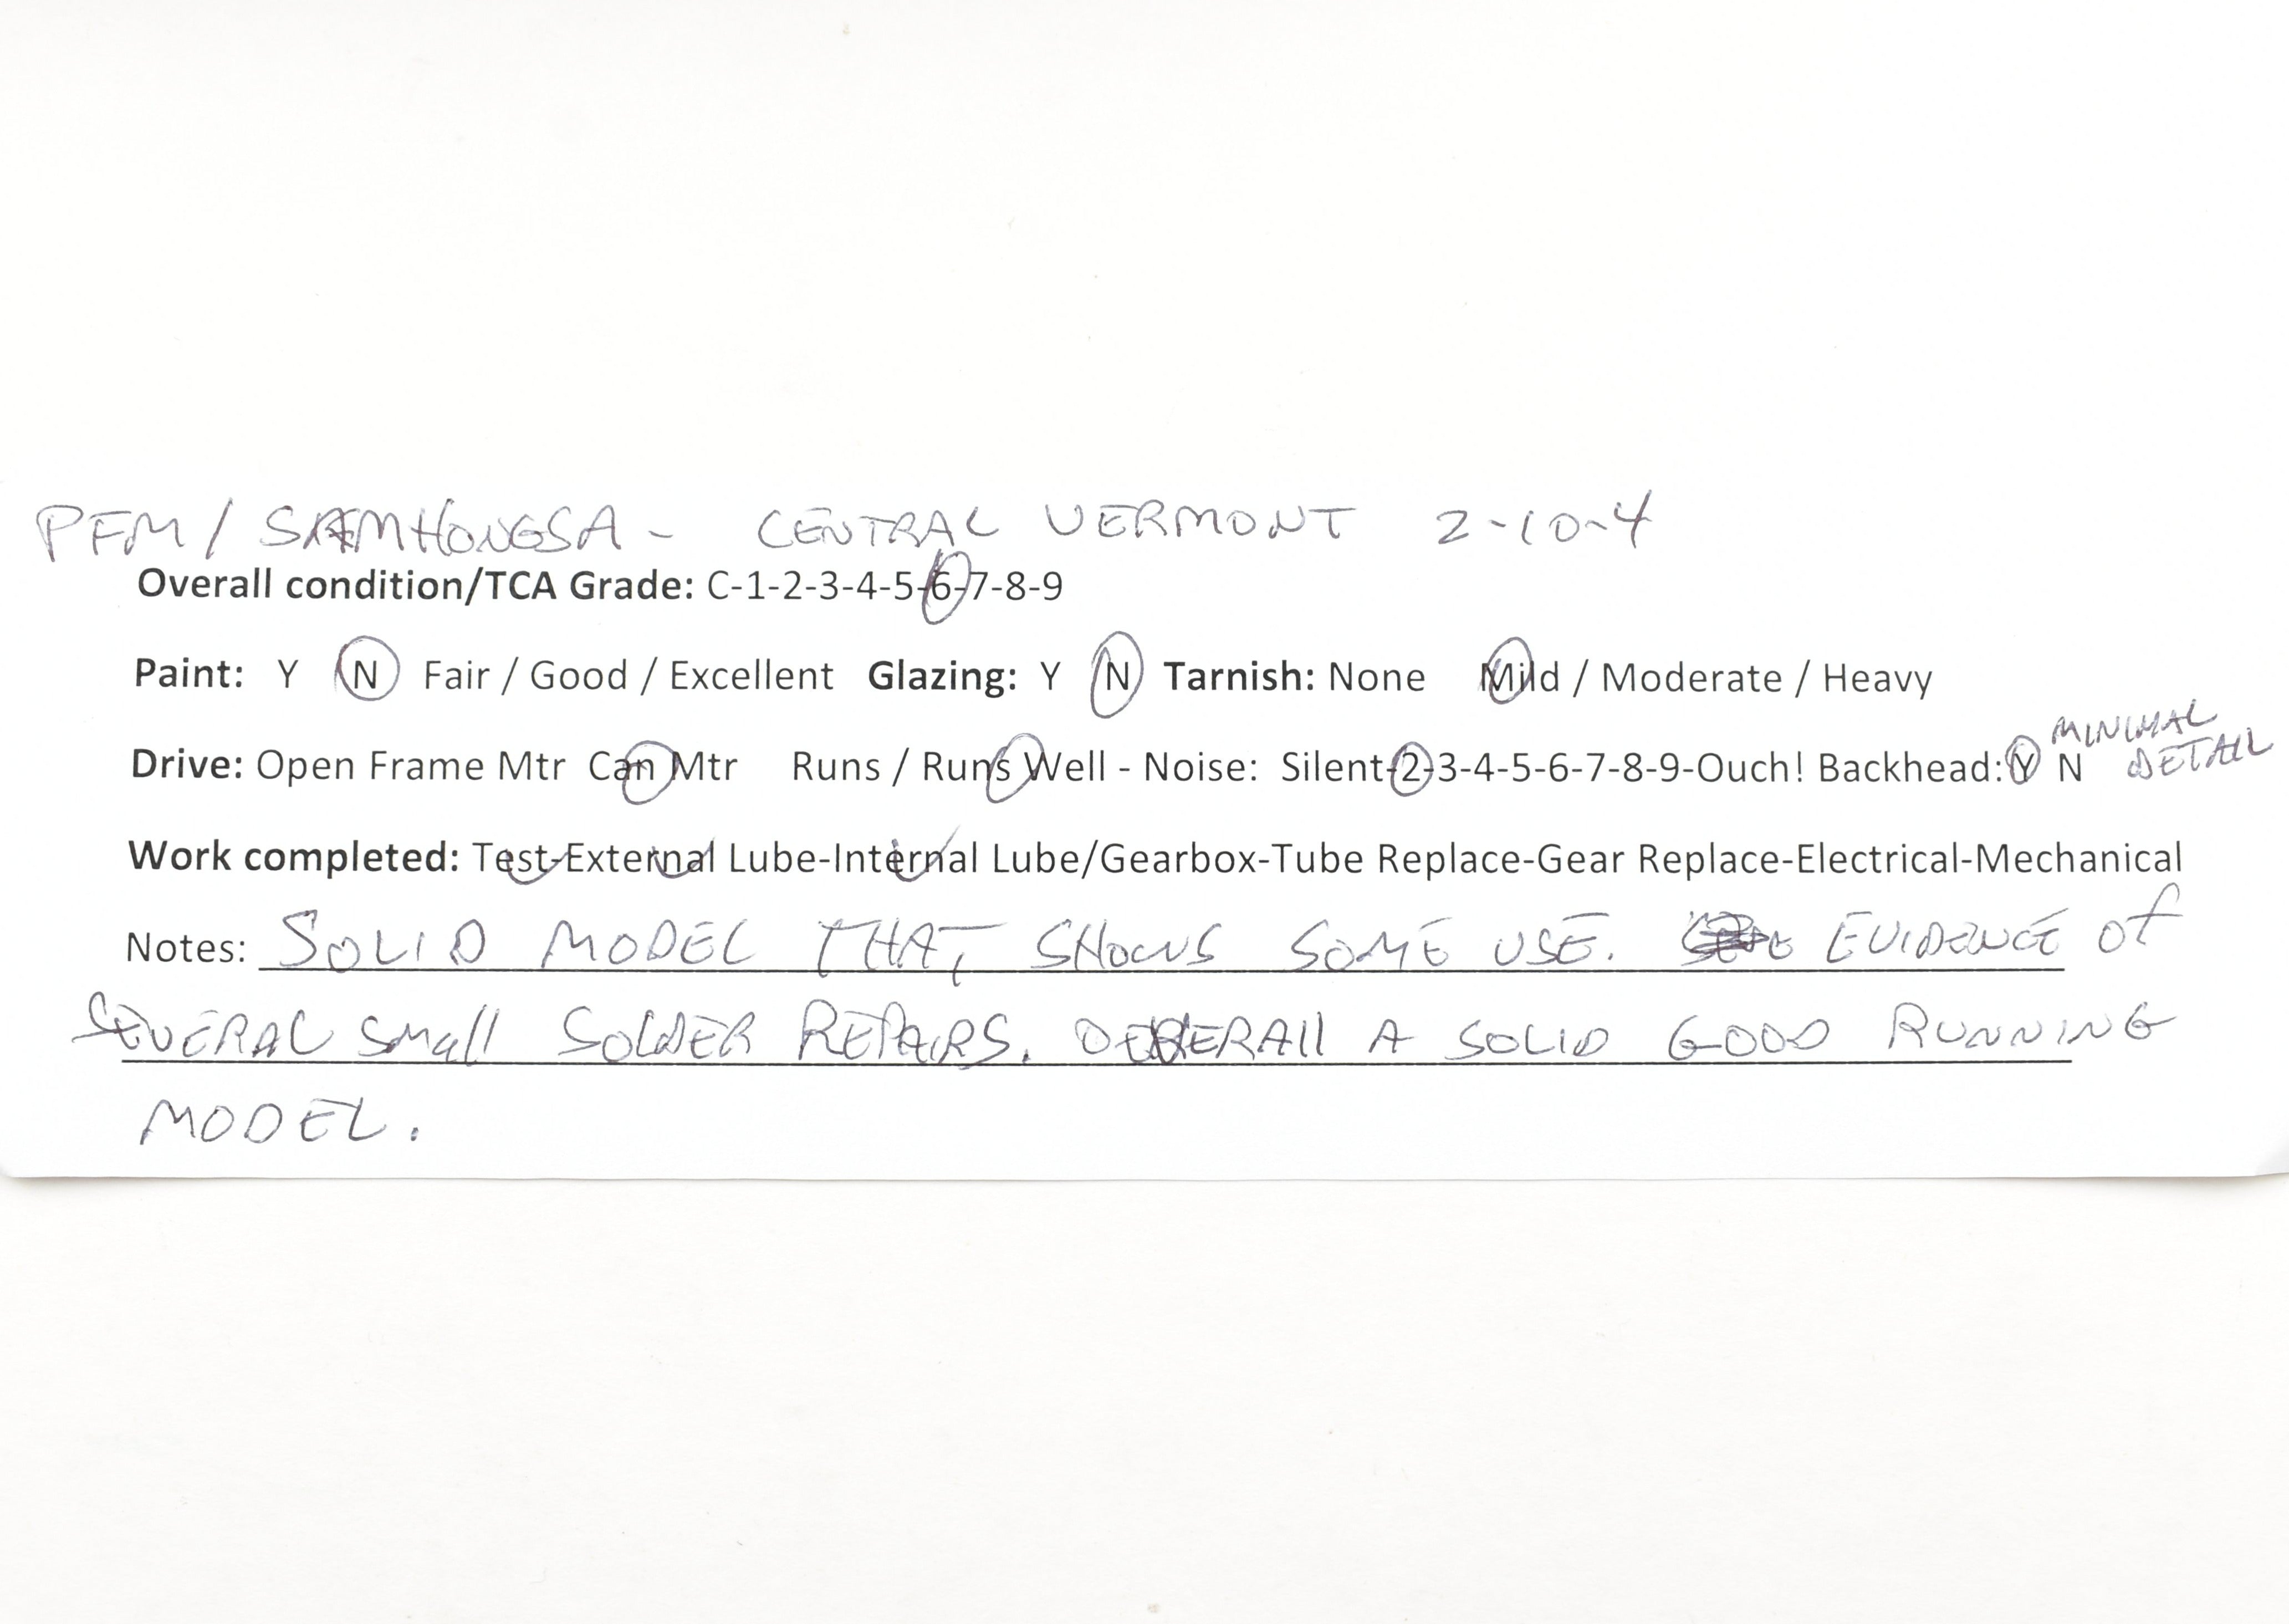 PFM / SAMHONGSA - CENTRAL VERMONT 2-10-4
Overall condition/TCA Grade: C-1-2-3-4-5-6-7-8-9
Paint: Y N Fair / Good / Excellent Glazing: Y N Tarnish: None Mild / Moderate / Heavy
MINIMAL
Drive: Open Frame Mtr Can Mtr Runs / Runs Well - Noise: Silent-2-3-4-5-6-7-8-9-Ouch! Backhead: Y N DETAIL
Work completed: Test-External Lube-Internal Lube/Gearbox-Tube Replace-Gear Replace-Electrical-Mechanical
Notes: SOLID MODEL THAT SHOWS SOME USE. EVIDENCE of
SEVERAL Small SOLDER REPAIRS. OVERAll A SOLID GOOD RUNNING
MODEL.